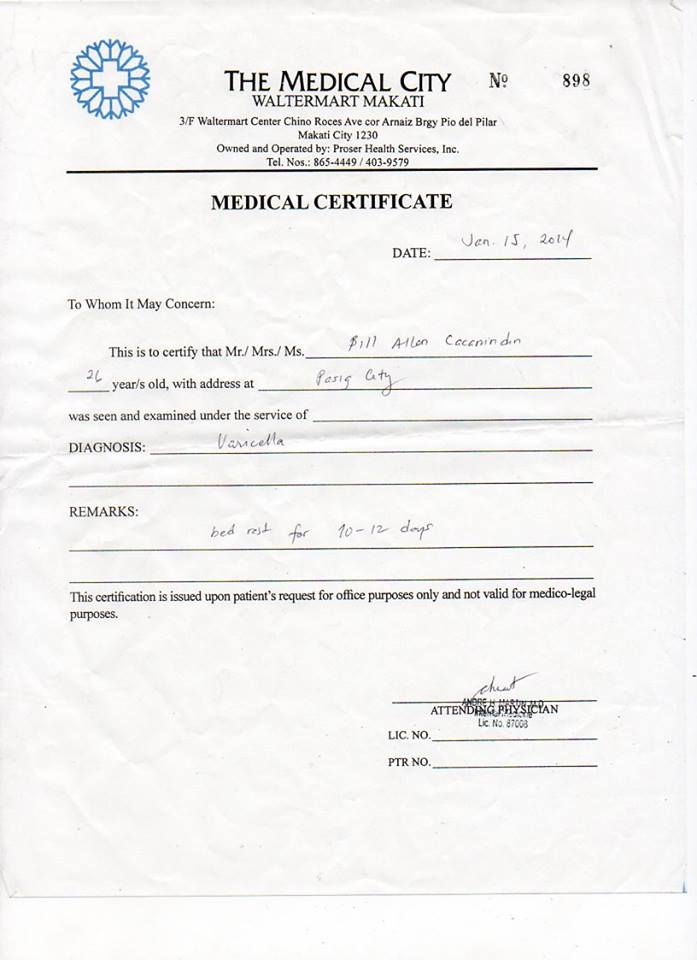 THE MEDICAL CITY Nº 898
WALTERMART MAKATI
3/F Waltermart Center Chino Roces Ave cor Arnaiz Brgy Pio del Pilar
Makati City 1230
Owned and Operated by: Proser Health Services, Inc.
Tel. Nos.: 865-4449 / 403-9579
MEDICAL CERTIFICATE
DATE: Jan. 15, 2014
To Whom It May Concern:
This is to certify that Mr./ Mrs./ Ms. Bill Allen Cacanindin
26 year/s old, with address at Pasig City
was seen and examined under the service of
DIAGNOSIS: Varicella
REMARKS:
bed rest for 10-12 days
This certification is issued upon patient's request for office purposes only and not valid for medico-legal
purposes.
ANDRE H. MARTIN, M.D.
ATTENDING PHYSICIAN
Lic. No. 87008
LIC. NO.
PTR NO.